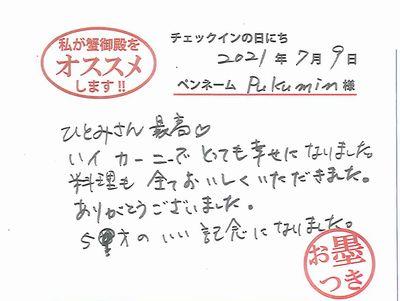 私が蟹御殿を
オススメ
します!!
チェックインの日にち
2021年7月9日
ペンネーム Pukumin 様
ひとみさん最高♡
いいカーニーで とっても幸せになりました。
料理も全ておいしくいただきました。
ありがとうございました。
方のいい記念になりました。
お墨
つき